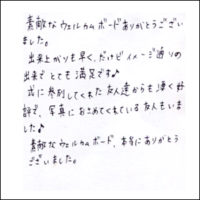 素敵なウェルカムボードありがとうござい
ました。
出来上がりも早く、だけどイメージ通りの
出来でとても満足です♪
式に参列してくれた友人達からも凄く好
評で、写真におさめてくれている友人もいま
した♪
素敵なウェルカムボード、本当にありがとう
ございました。